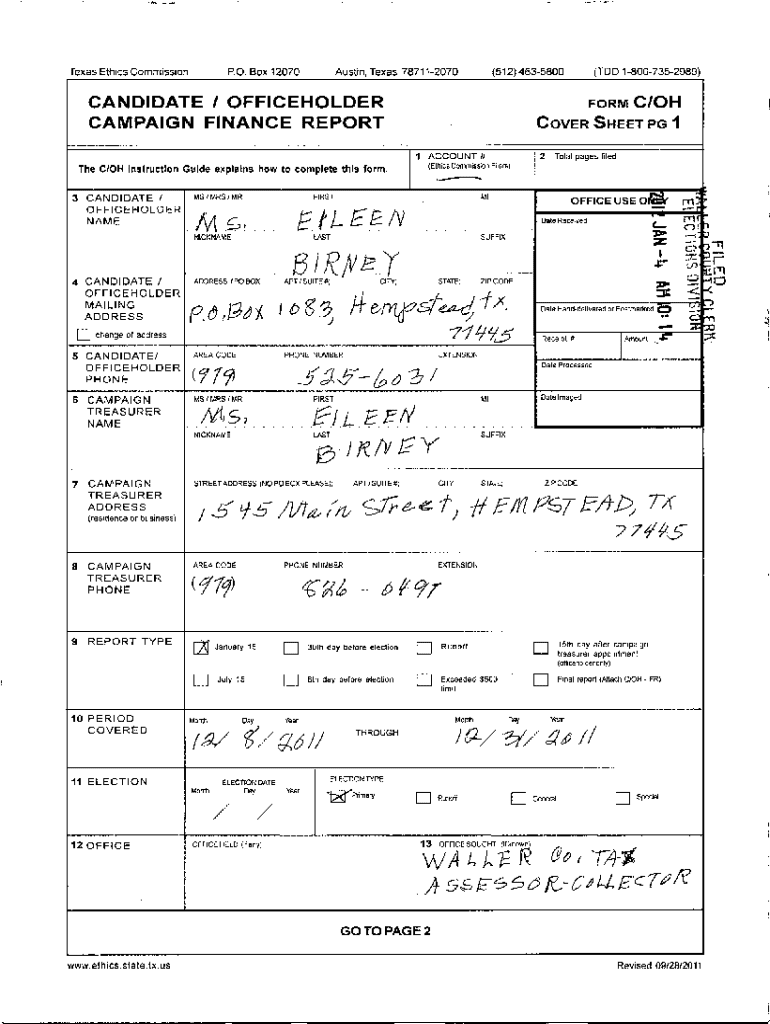 Texas Ethics Commission P.O. Box 12070 Austin, Texas 78711-2070 (512) 463-5800 (TDD 1-800-735-2989)
CANDIDATE / OFFICEHOLDER
CAMPAIGN FINANCE REPORT
FORM C/OH
COVER SHEET PG 1
The C/OH Instruction Guide explains how to complete this form.
1 ACCOUNT #
(Ethics Commission Filers)
2 Total pages filed
3 CANDIDATE /
OFFICEHOLDER
NAME
MS / MRS / MR FIRST MI
Ms. EILEEN
NICKNAME LAST SUFFIX
BIRNEY
OFFICE USE ONLY
Date Received
FILED
WALLER COUNTY CLERK
ELECTIONS DIVISION
2012 JAN -4 AM 10: 14
4 CANDIDATE /
OFFICEHOLDER
MAILING
ADDRESS
change of address
ADDRESS / PO BOX APT / SUITE #; CITY; STATE; ZIP CODE
P.O. Box 1083, Hempstead, tx.
77445
Date Hand-delivered or Postmarked
Receipt # Amount
5 CANDIDATE/
OFFICEHOLDER
PHONE
AREA CODE PHONE NUMBER EXTENSION
(979) 525-6031
Date Processed
6 CAMPAIGN
TREASURER
NAME
MS / MRS / MR FIRST MI
Ms. EILEEN
NICKNAME LAST SUFFIX
BIRNEY
Date Imaged
7 CAMPAIGN
TREASURER
ADDRESS
(residence or business)
STREET ADDRESS (NO PO BOX PLEASE); APT / SUITE #; CITY; STATE; ZIP CODE
1545 Main Street, HEMPSTEAD, TX
77445
8 CAMPAIGN
TREASURER
PHONE
AREA CODE PHONE NUMBER EXTENSION
(979) 826 - 0497
9 REPORT TYPE
X January 15 30th day before election Runoff 15th day after campaign
treasurer appointment
(officeholder only)
July 15 8th day before election Exceeded $500
limit
Final report (Attach C/OH - FR)
10 PERIOD
COVERED
Month Day Year
12/ 8/ 2011
THROUGH
Month Day Year
12/ 31/ 2011
11 ELECTION
ELECTION DATE
Month Day Year
/ /
ELECTION TYPE
X Primary Runoff General Special
12 OFFICE
OFFICE HELD (if any)
13 OFFICE SOUGHT (if known)
WALLER Co. TAX
ASSESSOR-COLLECTOR
GO TO PAGE 2
www.ethics.state.tx.us Revised 09/28/2011